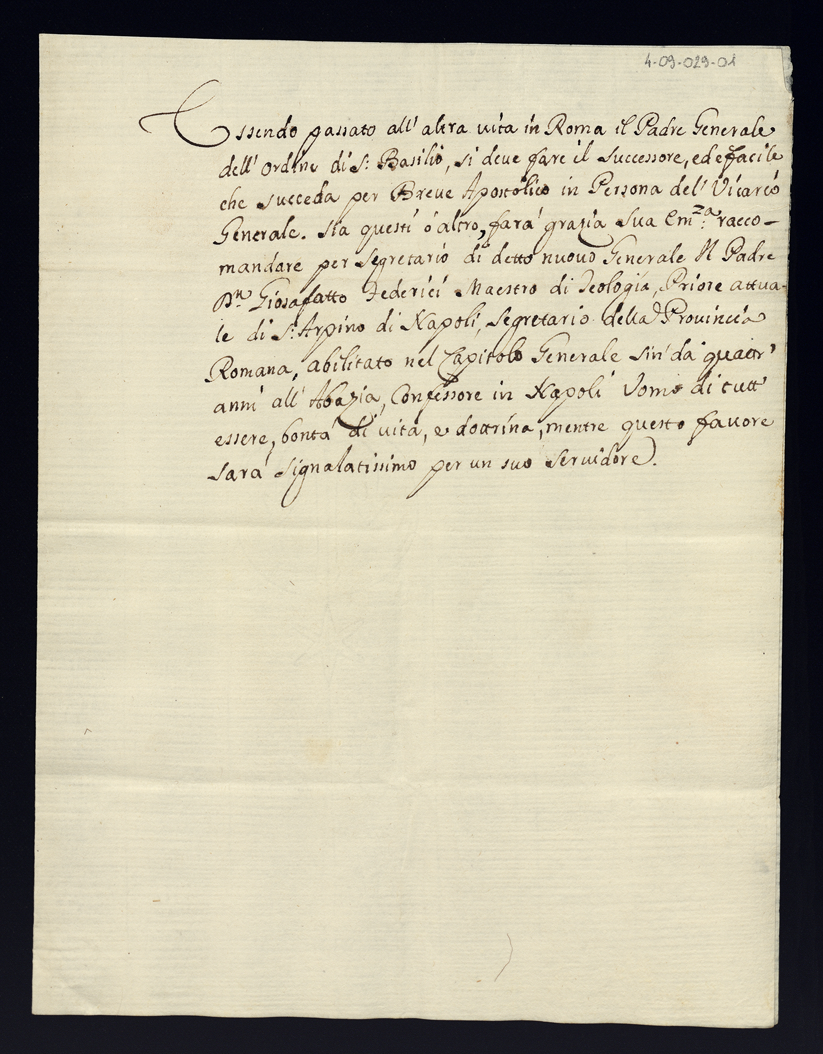 4-09-029-01
Essendo passato all' altra vita in Roma il Padre Generale
dell' Ordine di S. Basilio, si deve fare il successore, ed e facile
che succeda per Breve Apostolico in Persona del' Vicario
Generale. Sia questi ò altro, farà grazia Sua Em.za racco-
mandare per segretario di detto nuovo Generale Il Padre
Dn Giosafatto Federici Maestro di Teologia, Priore attua-
le di S. Arpino di Napoli, segretario della Provincia
Romana, abilitato nel Capitolo Generale sin' da quattr'
anni all' Abazia, Confessore in Napoli Uomo di tutt'
essere, bontà di vita, e dottrina, mentre questo favore
sarà signalatissimo per un suo servidore.